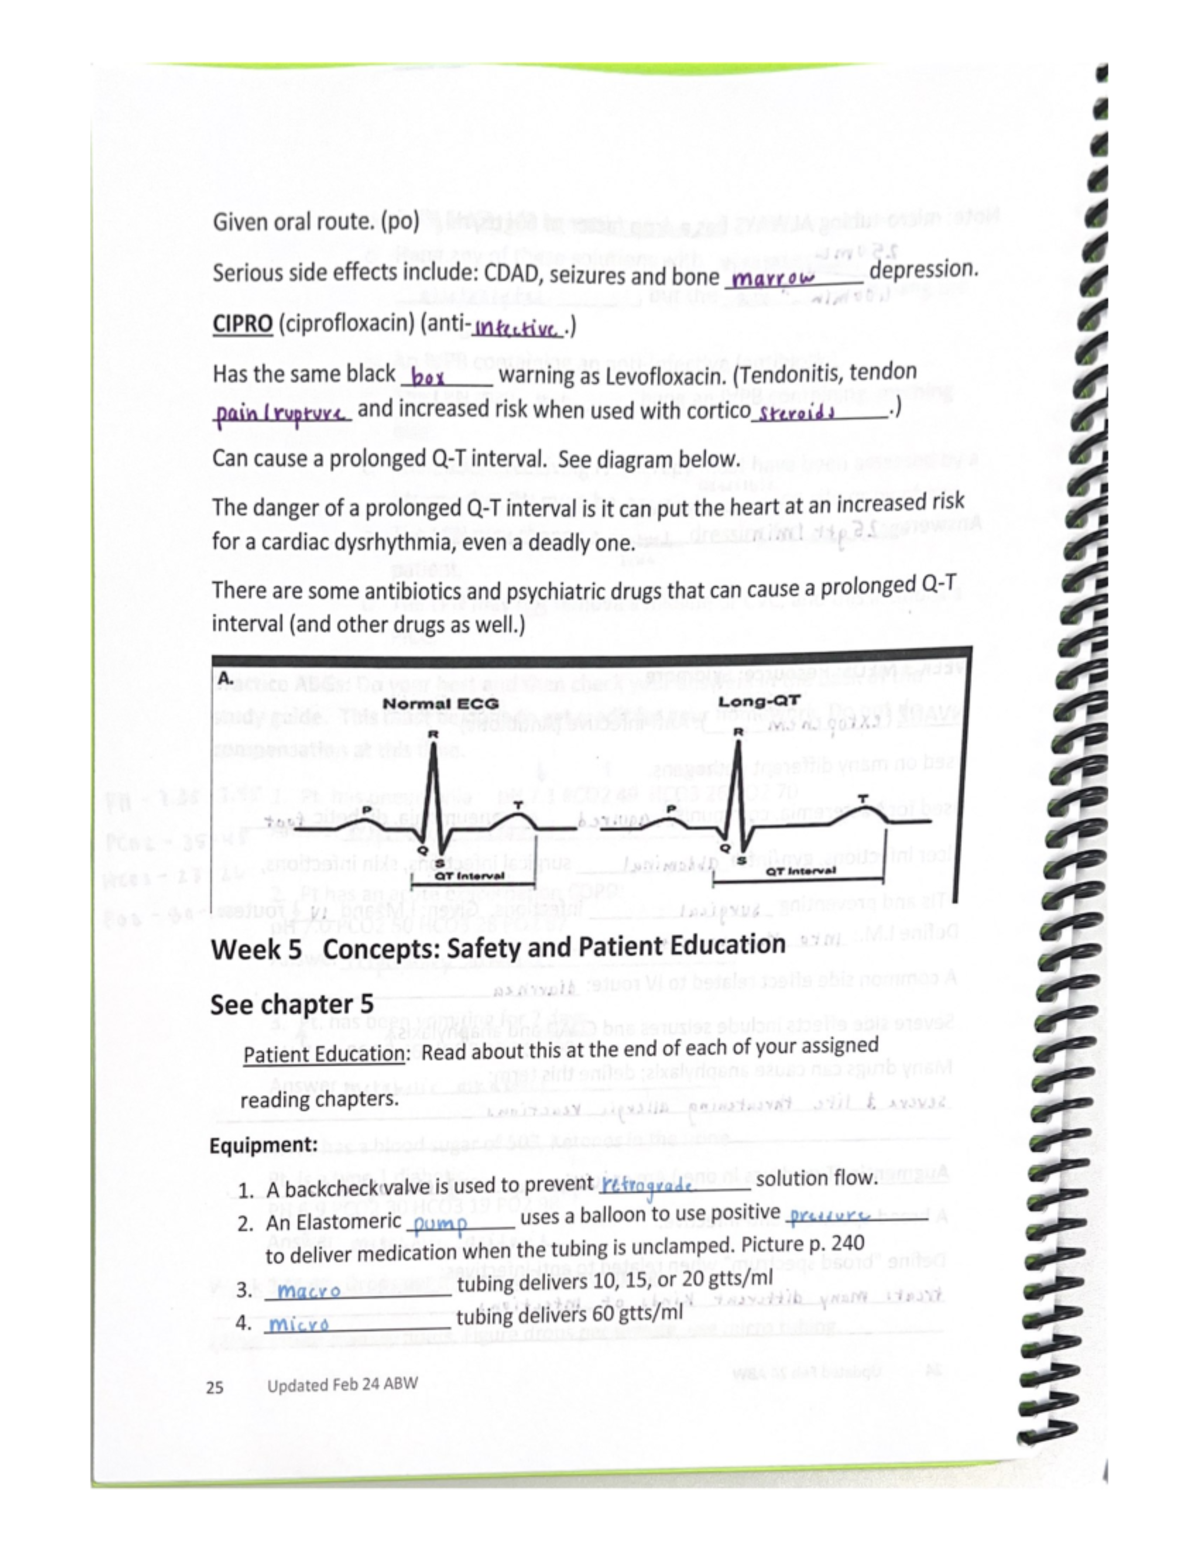 Given oral route. (po)
Serious side effects include: CDAD, seizures and bone marrow depression.
CIPRO (ciprofloxacin) (anti-infective.)
Has the same black box warning as Levofloxacin. (Tendonitis, tendon
pain/rupture and increased risk when used with cortico steroids.)
Can cause a prolonged Q-T interval. See diagram below.
The danger of a prolonged Q-T interval is it can put the heart at an increased risk
for a cardiac dysrhythmia, even a deadly one.
There are some antibiotics and psychiatric drugs that can cause a prolonged Q-T
interval (and other drugs as well.)
A.
Normal ECG Long-QT
R R
P T P T
Q Q
S S
QT Interval QT Interval
Week 5 Concepts: Safety and Patient Education
See chapter 5
Patient Education: Read about this at the end of each of your assigned
reading chapters.
Equipment:
1. A backcheck valve is used to prevent retrograde solution flow.
2. An Elastomeric pump uses a balloon to use positive pressure
to deliver medication when the tubing is unclamped. Picture p. 240
3. macro tubing delivers 10, 15, or 20 gtts/ml
4. micro tubing delivers 60 gtts/ml
25 Updated Feb 24 ABW